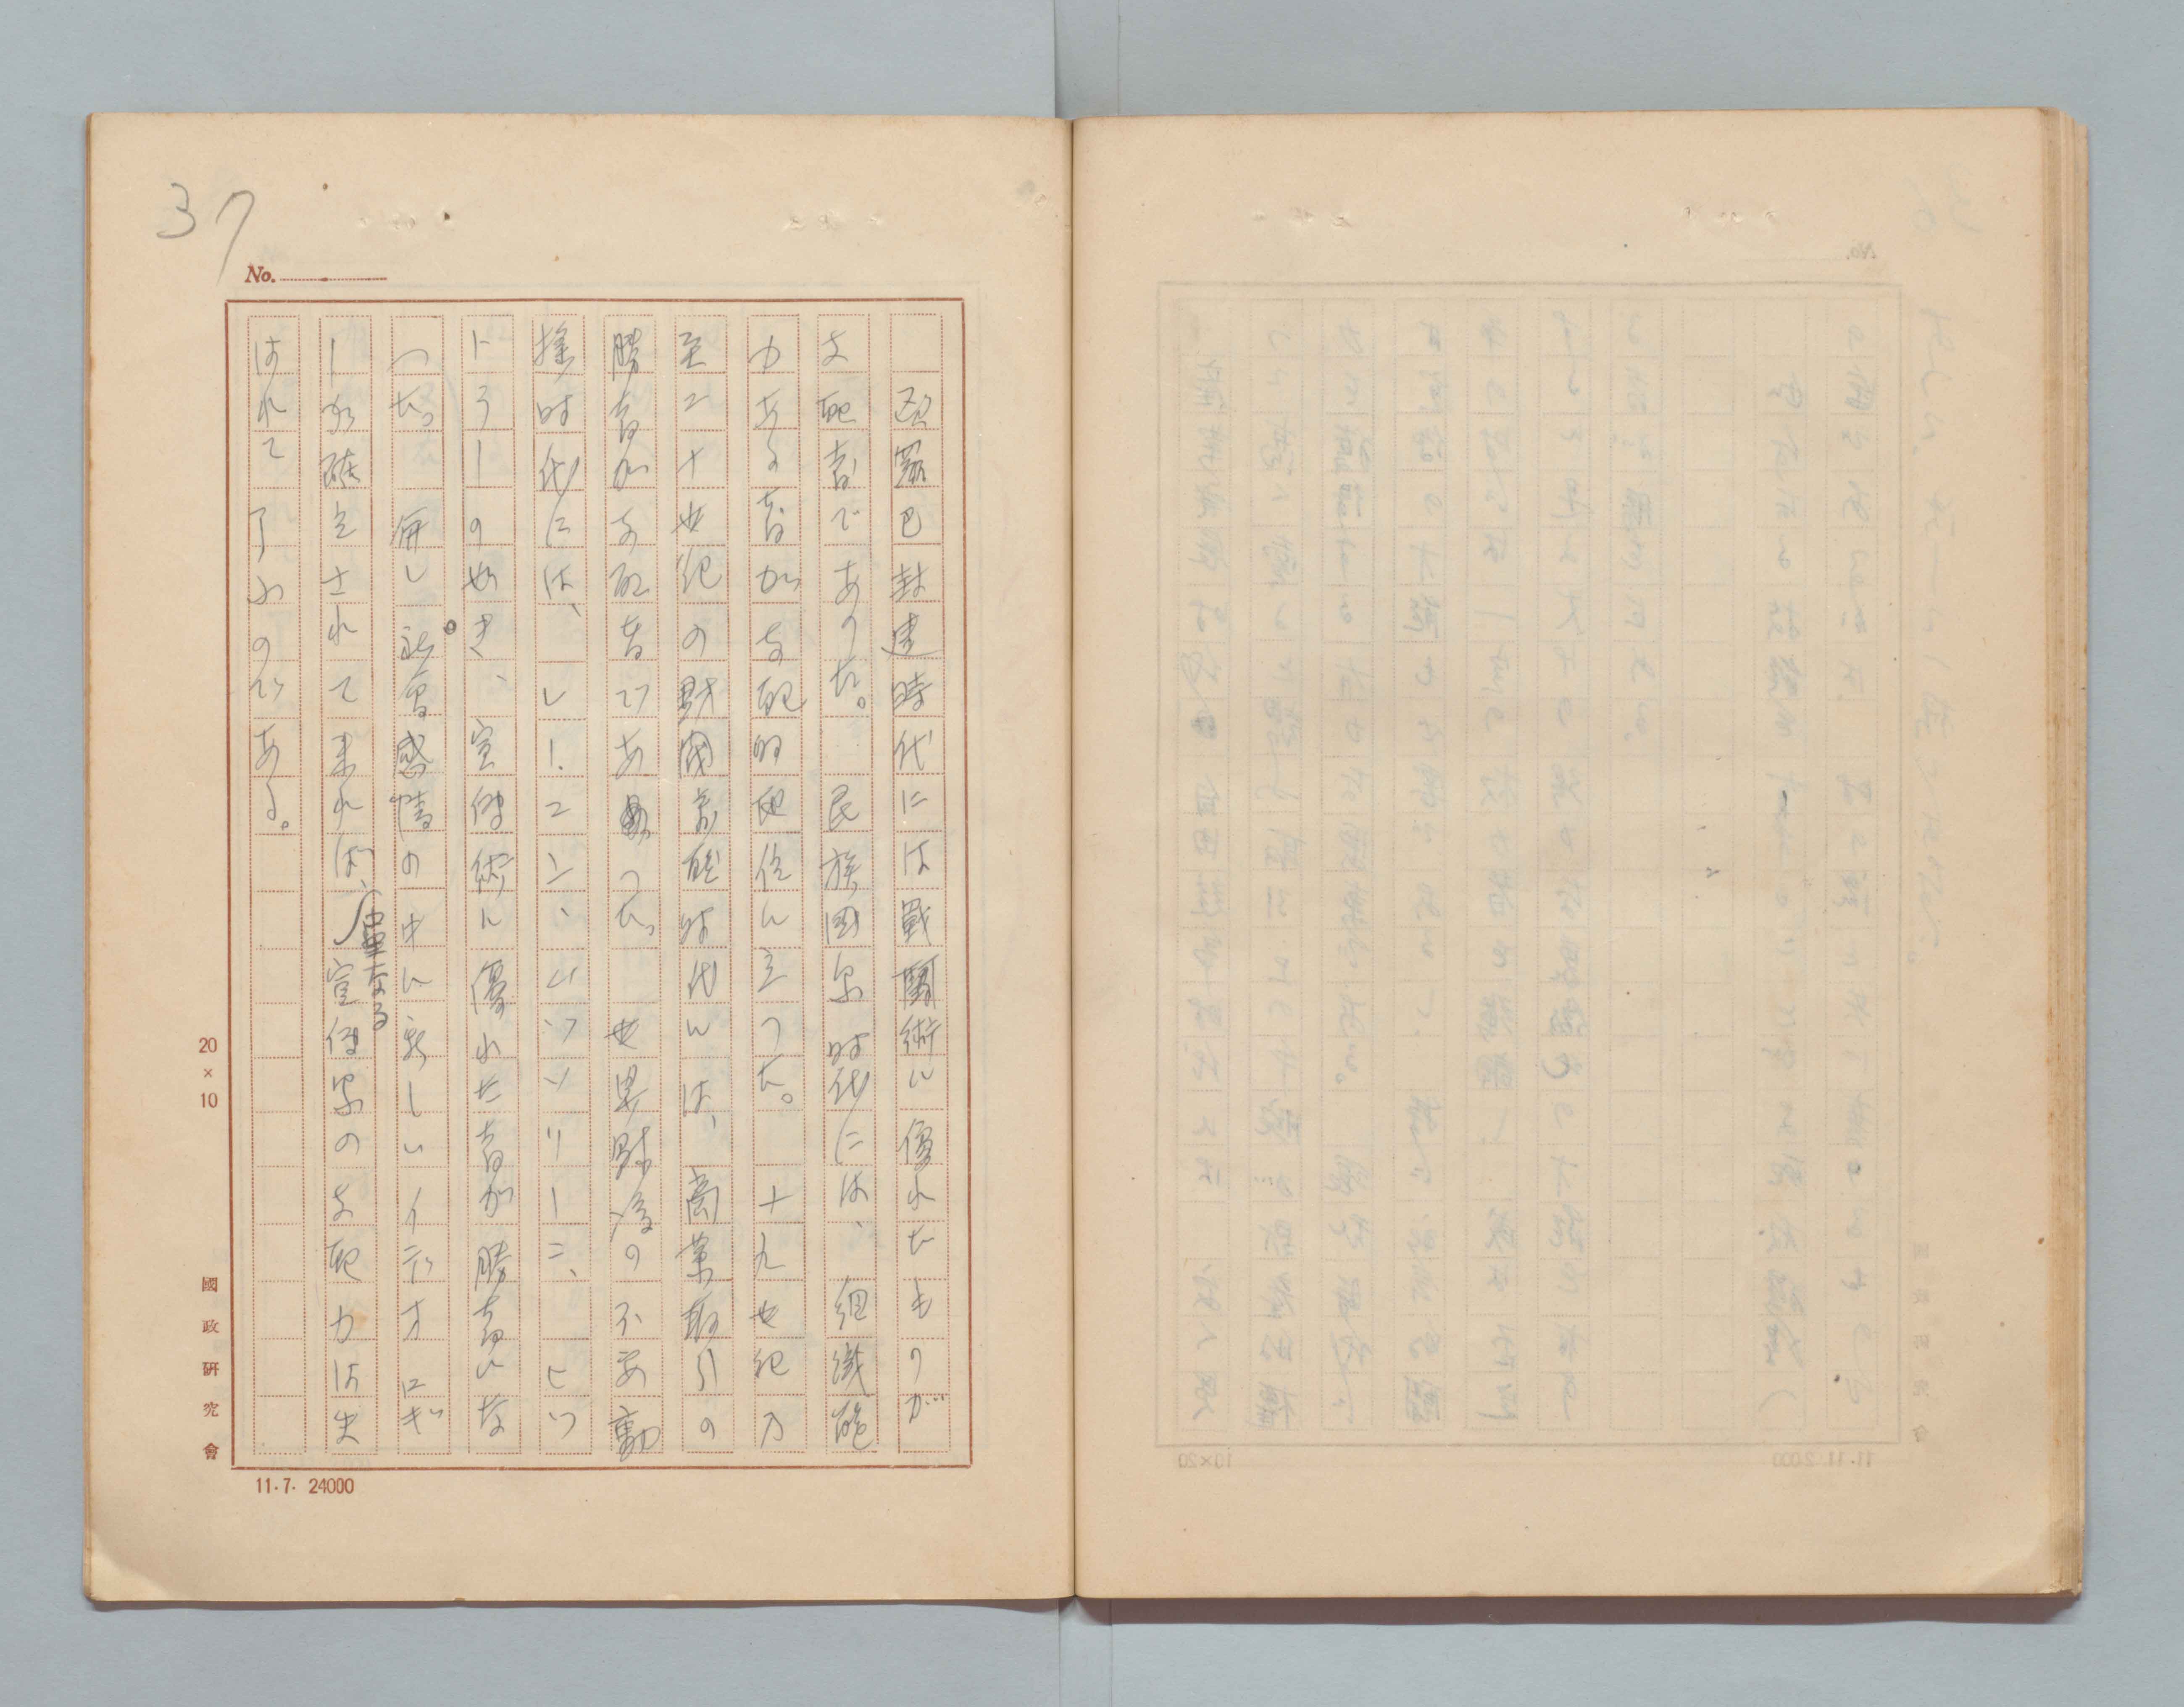 37
No.
欧羅巴封建時代には戦闘術に優れたものが
支配者であつた。民族国家時代には、組織能
力ある者が支配的地位に立つた。十九世紀乃
至二十世紀の財閥萬能時代には、商業取引の
勝者が支配者であつた。世界財政の不安動
揺時代には、レーニン、ムツソリーニ、ヒツ
トラーの如き、宣伝術に優れた者が勝者にな
つた。併し社会感情の中に新しいイデオロギ
ーが確立されて来れば、単なる宣伝家の支配力は失
はれて了ふのである。
20×10
國政研究會
11.7. 24000